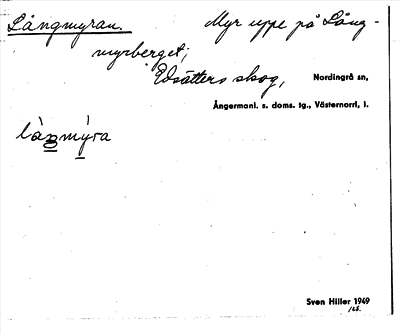 Långmyran. Myr uppe på Lång-
myrberget;
Edsätters skog, Nordingrå sn,
Ångermanl. s. doms. tg., Västernorrl, l.
Sven Hiller 1949